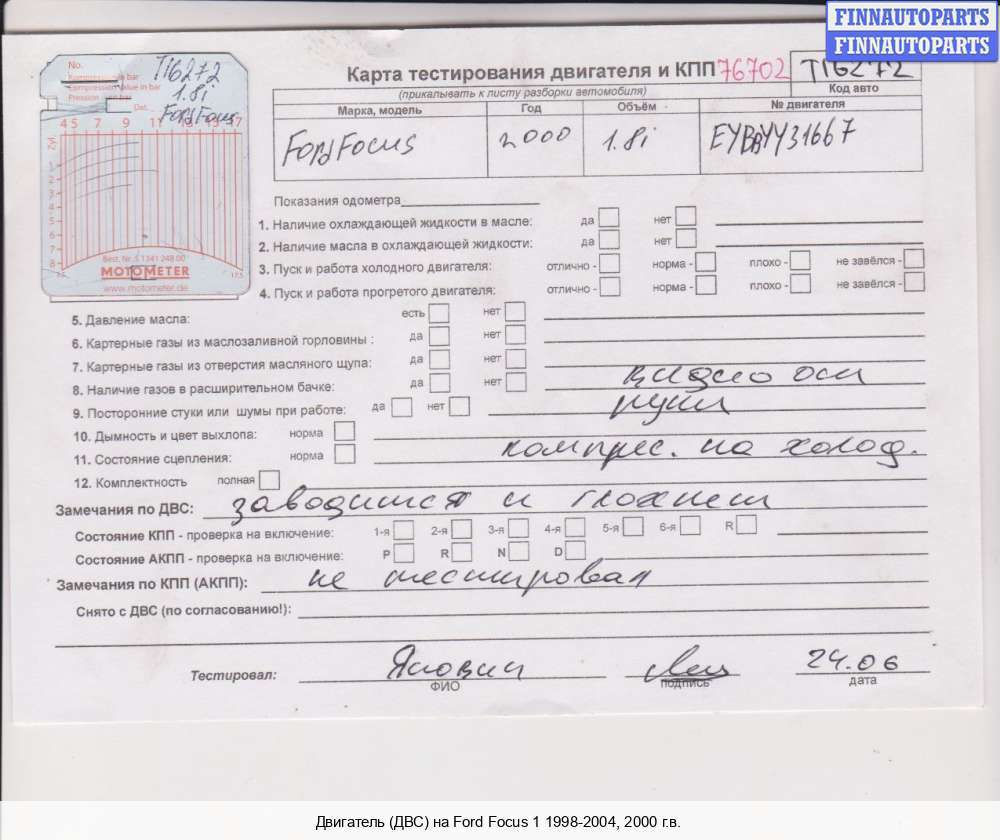 FINNAUTOPARTS
FINNAUTOPARTS
No. T16272
Kompression in bar
Compression value in bar
1.8i
Dat.
Ford Focus
4 5 7 9 11 13 15 17
Zyl.
1
2
3
4
5
6
7
8
Best. Nr. 5 1341 248 00
17,5
MOTOMETER
www.motometer.de
Карта тестирования двигателя и КПП 76702 T16272
(прикалывать к листу разборки автомобиля) Код авто
Марка, модель Год Объём № двигателя
Ford Focus 2000 1.8i EYDBYY31667
Показания одометра
1. Наличие охлаждающей жидкости в масле: да нет
2. Наличие масла в охлаждающей жидкости: да нет
3. Пуск и работа холодного двигателя: отлично - норма - плохо - не завёлся -
4. Пуск и работа прогретого двигателя: отлично - норма - плохо - не завёлся -
5. Давление масла: есть нет
6. Картерные газы из маслозаливной горловины : да нет
7. Картерные газы из отверстия масляного щупа: да нет
8. Наличие газов в расширительном бачке: да нет видио оси
9. Посторонние стуки или шумы при работе: да нет
10. Дымность и цвет выхлопа: норма
11. Состояние сцепления: норма компрес. на холод.
12. Комплектность полная
Замечания по ДВС: заводится и глохнет
Состояние КПП - проверка на включение: 1-я 2-я 3-я 4-я 5-я 6-я R
Состояние АКПП - проверка на включение: P R N D
Замечания по КПП (АКПП): не тестировал
Снято с ДВС (по согласованию!):
Тестировал: 24.06
ФИО подпись дата
Двигатель (ДВС) на Ford Focus 1 1998-2004, 2000 г.в.